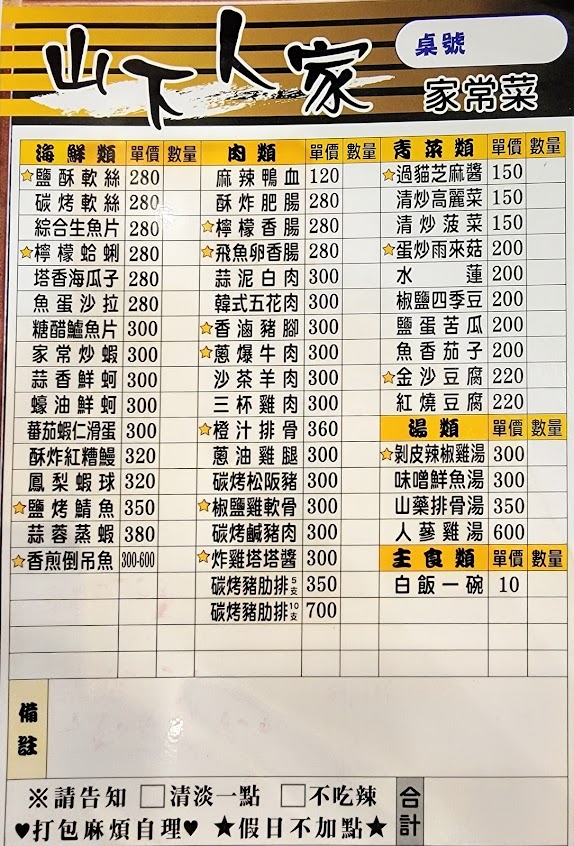 山下人家
桌號
家常菜
海鮮類 單價 數量
☆鹽酥軟絲 280
碳烤軟絲 280
綜合生魚片 280
☆檸檬蛤蜊 280
塔香海瓜子 280
魚蛋沙拉 280
糖醋鱸魚片 300
家常炒蝦 300
蒜香鮮蚵 300
蠔油鮮蚵 300
蕃茄蝦仁滑蛋 300
酥炸紅糟鰻 320
鳳梨蝦球 320
☆鹽烤鯖魚 350
蒜蓉蒸蝦 380
☆香煎倒吊魚 300-600
肉類 單價 數量
麻辣鴨血 120
酥炸肥腸 280
☆檸檬香腸 280
☆飛魚卵香腸 280
蒜泥白肉 300
韓式五花肉 300
☆香滷豬腳 300
☆蔥爆牛肉 300
沙茶羊肉 300
三杯雞肉 300
☆橙汁排骨 360
蔥油雞腿 300
碳烤松阪豬 300
☆椒鹽雞軟骨 300
碳烤鹹豬肉 300
☆炸雞塔塔醬 300
碳烤豬肋排5支 350
碳烤豬肋排10支 700
青菜類 單價 數量
☆過貓芝麻醬 150
清炒高麗菜 150
清炒菠菜 150
☆蛋炒雨來菇 200
水蓮 200
椒鹽四季豆 200
鹽蛋苦瓜 200
魚香茄子 200
☆金沙豆腐 220
紅燒豆腐 220
湯類 單價 數量
☆剝皮辣椒雞湯 300
味噌鮮魚湯 300
山藥排骨湯 350
人蔘雞湯 600
主食類 單價 數量
白飯一碗 10
備註
※請告知 □清淡一點 □不吃辣
♥打包麻煩自理♥ ★假日不加點★
合計